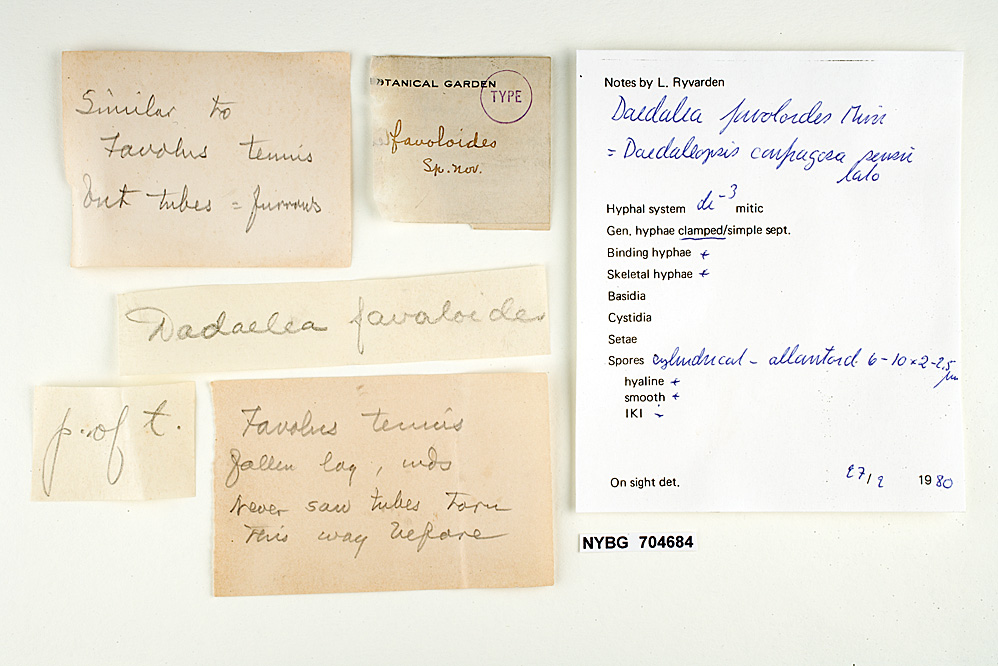 Similar to
Favolus tenuis
but tubes = furrows
BOTANICAL GARDEN
TYPE
favoloides
Sp. nov.
Dadaelea favaloides
p. of t.
Favolus tenuis
fallen log, wds
Never saw tubes torn
this way before
Notes by L. Ryvarden
Daedalea favoloides Murr
= Daedaleopsis confragosa sensu
lato
Hyphal system di-3 mitic
Gen. hyphae clamped/simple sept.
Binding hyphae +
Skeletal hyphae +
Basidia
Cystidia
Setae
Spores cylindrical - allantoid 6-10 x 2-2,5
µm
hyaline +
smooth +
IKI -
On sight det. 27/2 1980
NYBG 704684